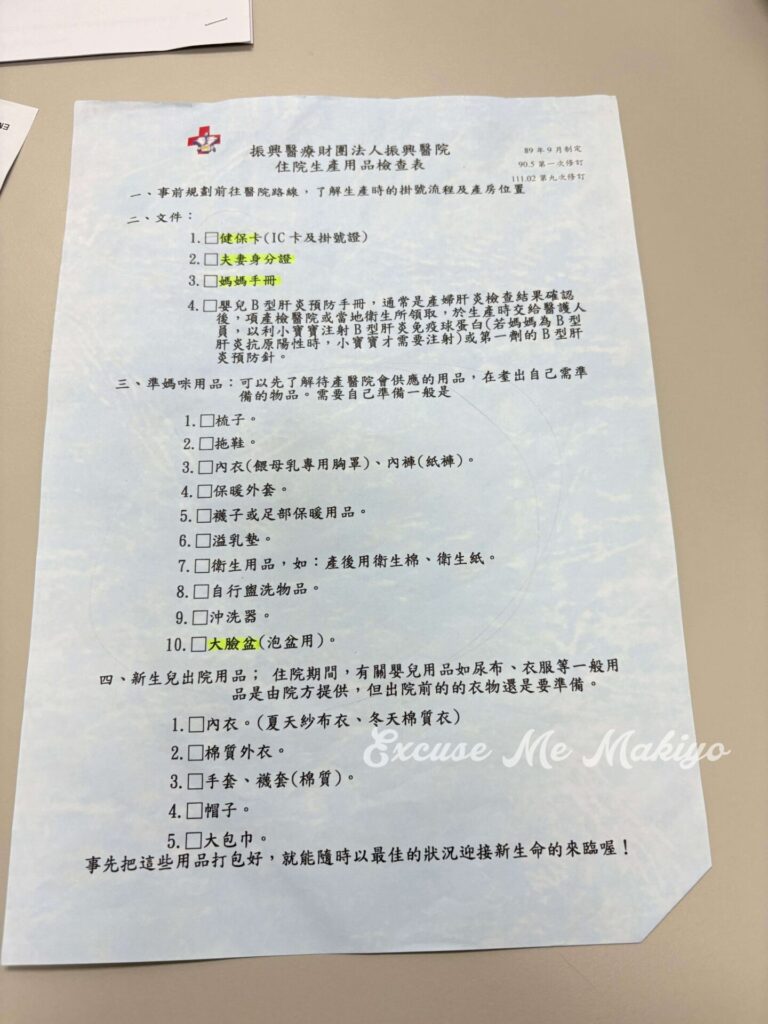 振興醫療財團法人振興醫院
住院生產用品檢查表
89 年 9 月制定
90.5 第一次修訂
111.02 第九次修訂
一、事前規劃前往醫院路線，了解生產時的掛號流程及產房位置
二、文件：
1.□健保卡(IC 卡及掛號證)
2.□夫妻身分證
3.□媽媽手冊
4.□嬰兒 B 型肝炎預防手冊，通常是產婦肝炎檢查結果確認
後，項產檢醫院或當地衛生所領取，於生產時交給醫護人
員，以利小寶寶注射 B 型肝炎免疫球蛋白(若媽媽為 B 型
肝炎抗原陽性時，小寶寶才需要注射)或第一劑的 B 型肝
炎預防針。
三、準媽咪用品：可以先了解待產醫院會供應的用品，在耊出自己需準
備的物品。需要自己準備一般是
1.□梳子。
2.□拖鞋。
3.□內衣(餵母乳專用胸罩)、內褲(紙褲)。
4.□保暖外套。
5.□襪子或足部保暖用品。
6.□溢乳墊。
7.□衛生用品，如：產後用衛生棉、衛生紙。
8.□自行盥洗物品。
9.□沖洗器。
10.□大臉盆(泡盆用)。
四、新生兒出院用品； 住院期間，有關嬰兒用品如尿布、衣服等一般用
品是由院方提供，但出院前的的衣物還是要準備。
1.□內衣。(夏天紗布衣、冬天棉質衣)
2.□棉質外衣。
3.□手套、襪套(棉質)。
4.□帽子。
5.□大包巾。
事先把這些用品打包好，就能隨時以最佳的狀況迎接新生命的來臨喔！
Excuse Me Makiyo